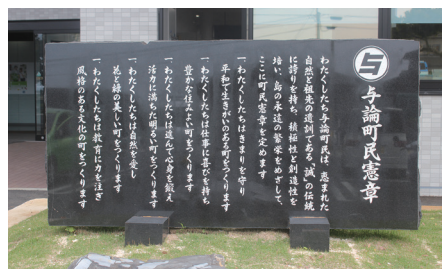 与論町民憲章
わたくしたち与論町民は、恵まれた
自然と祖先の遺訓である、"誠"の伝統
に誇りを持ち、積極性と創造性を
培い、島の永遠の繁栄をめざして、
ここに町民憲章を定めます
一、わたくしたちはきまりを守り
平和で生きがいのある町をつくります
一、わたくしたちは仕事に喜びを持ち
豊かな住みよい町をつくります
一、わたくしたちは進んで心身を鍛え
活力に満ちた明るい町をつくります
一、わたくしたちは自然を愛し
花と緑の美しい町をつくります
一、わたくしたちは教育に力を注ぎ
風格のある文化の町をつくります